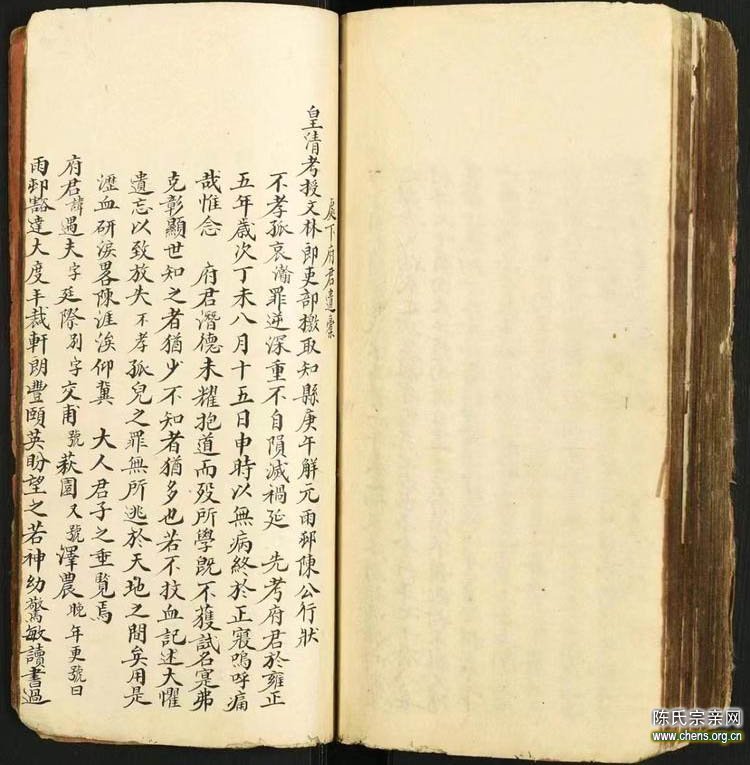 皇清考授文林郎吏部檄取知縣庚午解元雨邨陳公行狀
下府君遺稾
不孝孤哀瀹罪逆深重不自隕滅禍延 先考府君於雍正
五年歲次丁未八月十五日申時以無病終於正寢嗚呼痛
哉惟念 府君潛德未耀抱道而歿所學旣不獲試名寔弗
克彰顯世知之者猶少不知者猶多也若不抆血記述大懼
遺忘以致放失不孝孤兒之罪無所逃於天地之間矣用是
瀝血研淚畧陳涯涘仰冀 大人君子之垂覽焉
府君諱遇夫字廷際別字交甫號萩園又號澤農晚年更號曰
雨邨豁達大度丰裁軒朗豐頤英盼望之若神幼驚敏讀書過
陈氏宗亲网
www.chens.org.cn